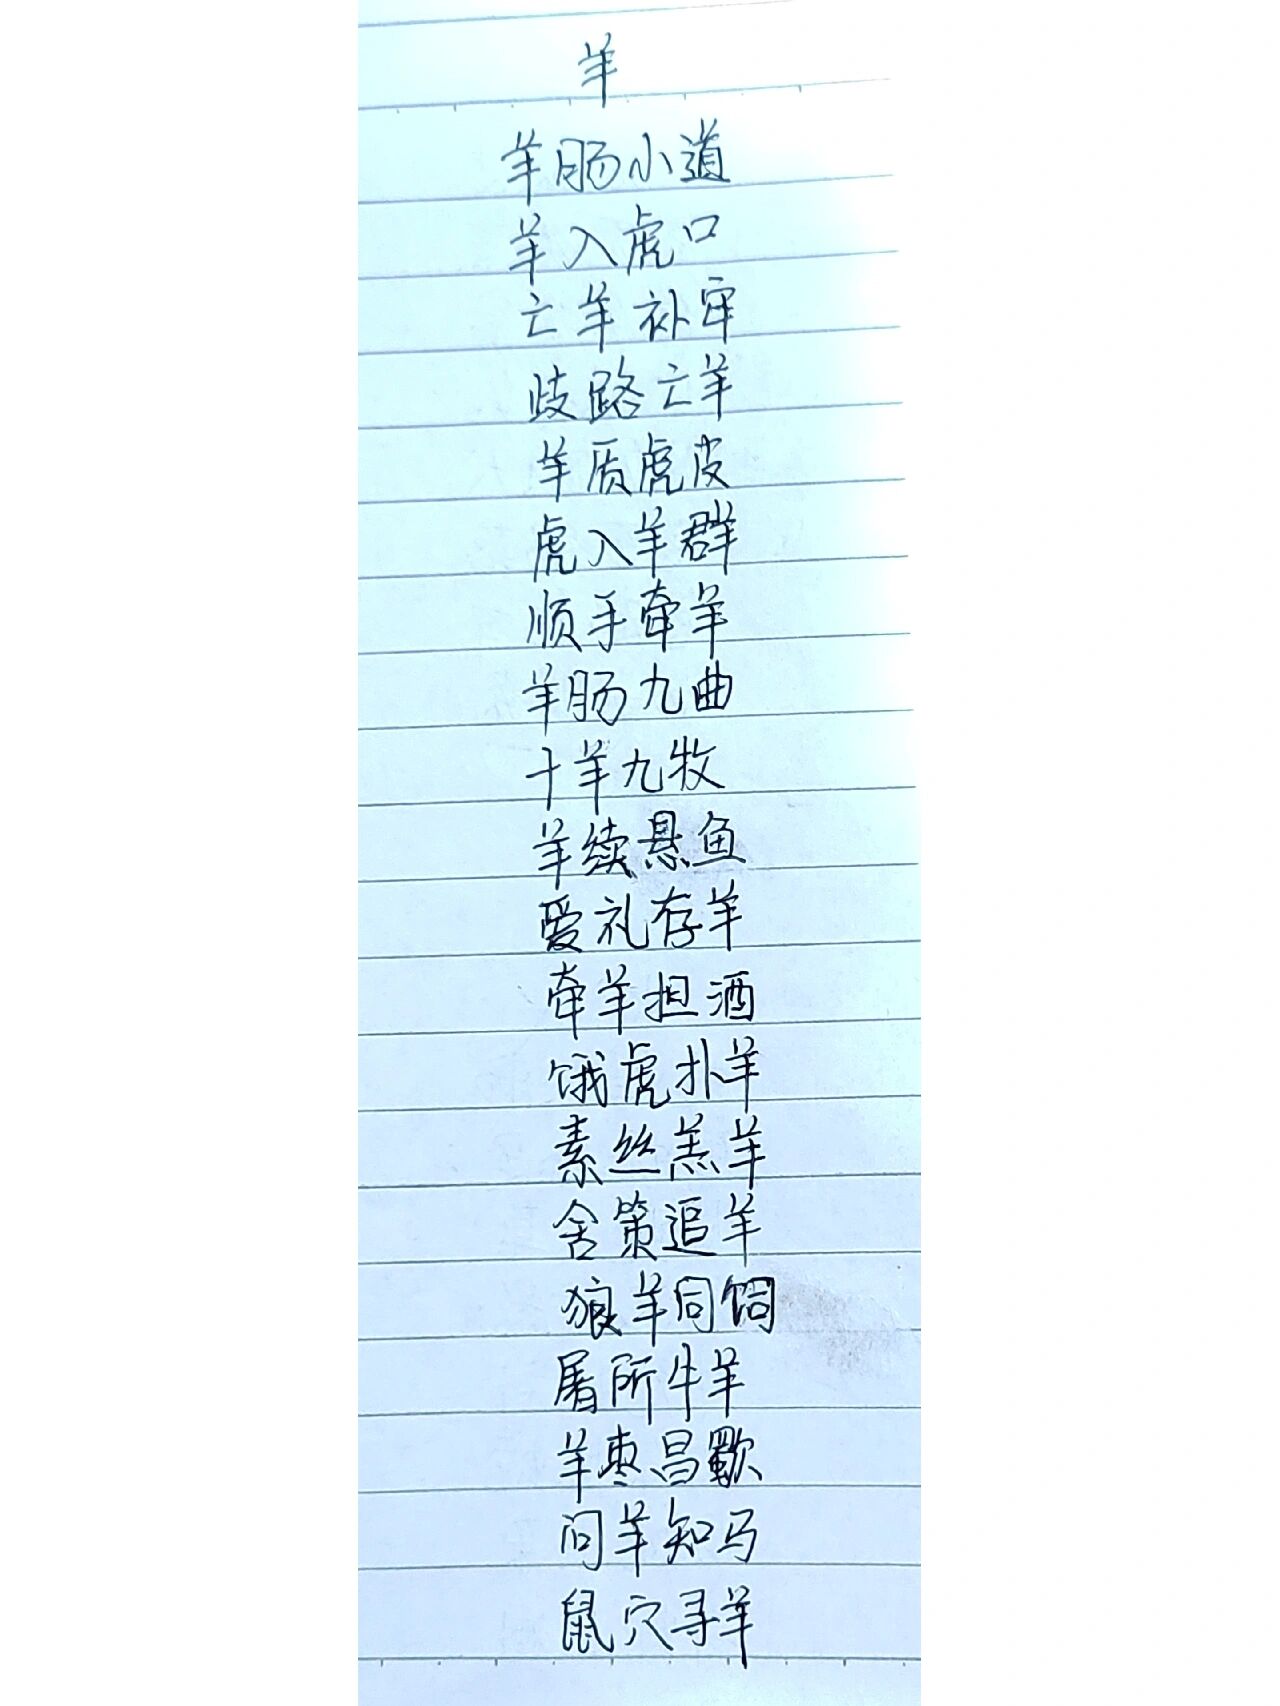 羊
羊肠小道
羊入虎口
亡羊补牢
歧路亡羊
羊质虎皮
虎入羊群
顺手牵羊
羊肠九曲
十羊九牧
羊续悬鱼
爱礼存羊
牵羊担酒
饿虎扑羊
素丝羔羊
舍策追羊
狼羊同饲
屠所牛羊
羊枣昌歜
问羊知马
鼠穴寻羊